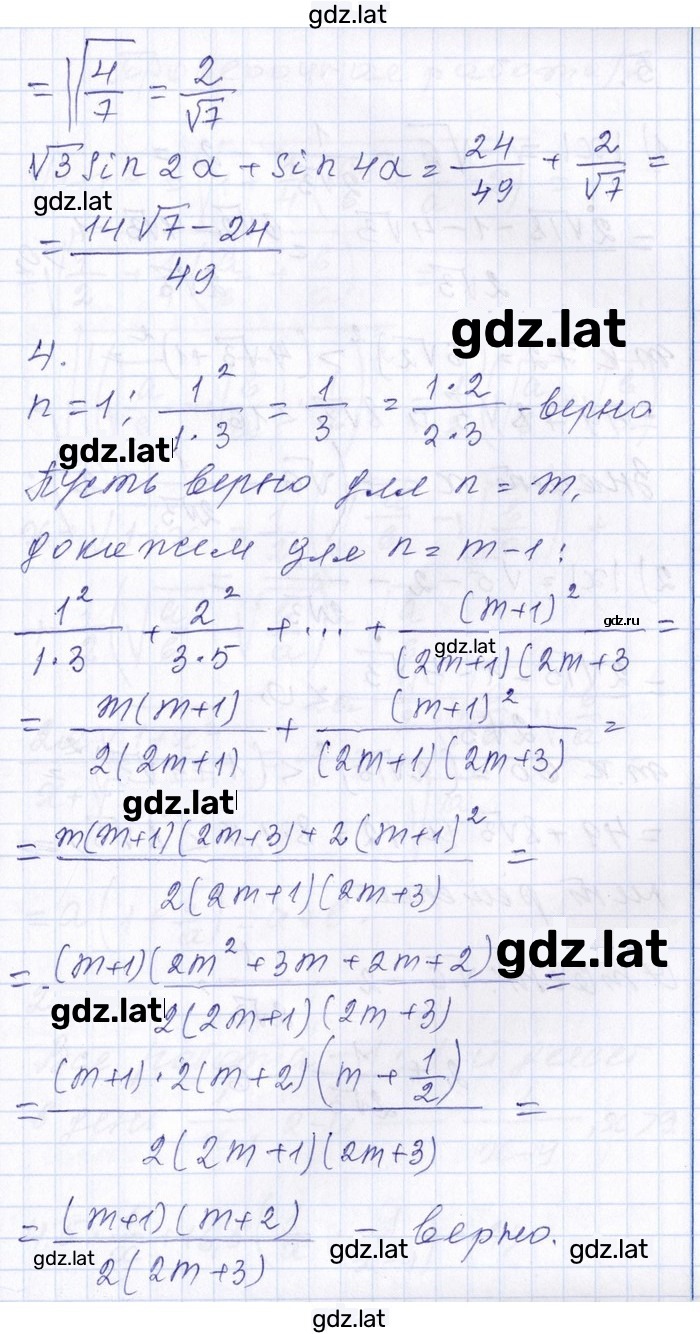 gdz.lat
= √(4/7) = 2/√7
√3 sin 2α + sin 4α = 24/49 + 2/√7 =
gdz.lat
= (14√7 − 24)/49
gdz.lat
4.
n = 1; 1²/(1·3) = 1/3 = (1·2)/(2·3) - верно
gdz.lat
Пусть верно для n = m,
докажем для n = m − 1:
1²/(1·3) + 2²/(3·5) + ... + (m+1)²/((2m+1)(2m+3 =
gdz.ru
gdz.lat
= m(m+1)/(2(2m+1)) + (m+1)²/((2m+1)(2m+3)) =
gdz.lat
= (m(m+1)(2m+3) + 2(m+1)²)/(2(2m+1)(2m+3)) =
gdz.lat
= (m+1)(2m² + 3m + 2m + 2)/(2(2m+1)(2m+3)) =
gdz.lat
= (m+1)·2(m+2)(m + 1/2)/(2(2m+1)(2m+3)) =
= (m+1)(m+2)/(2(2m+3)) − верно.
gdz.lat gdz.lat gdz.lat
gdz.lat